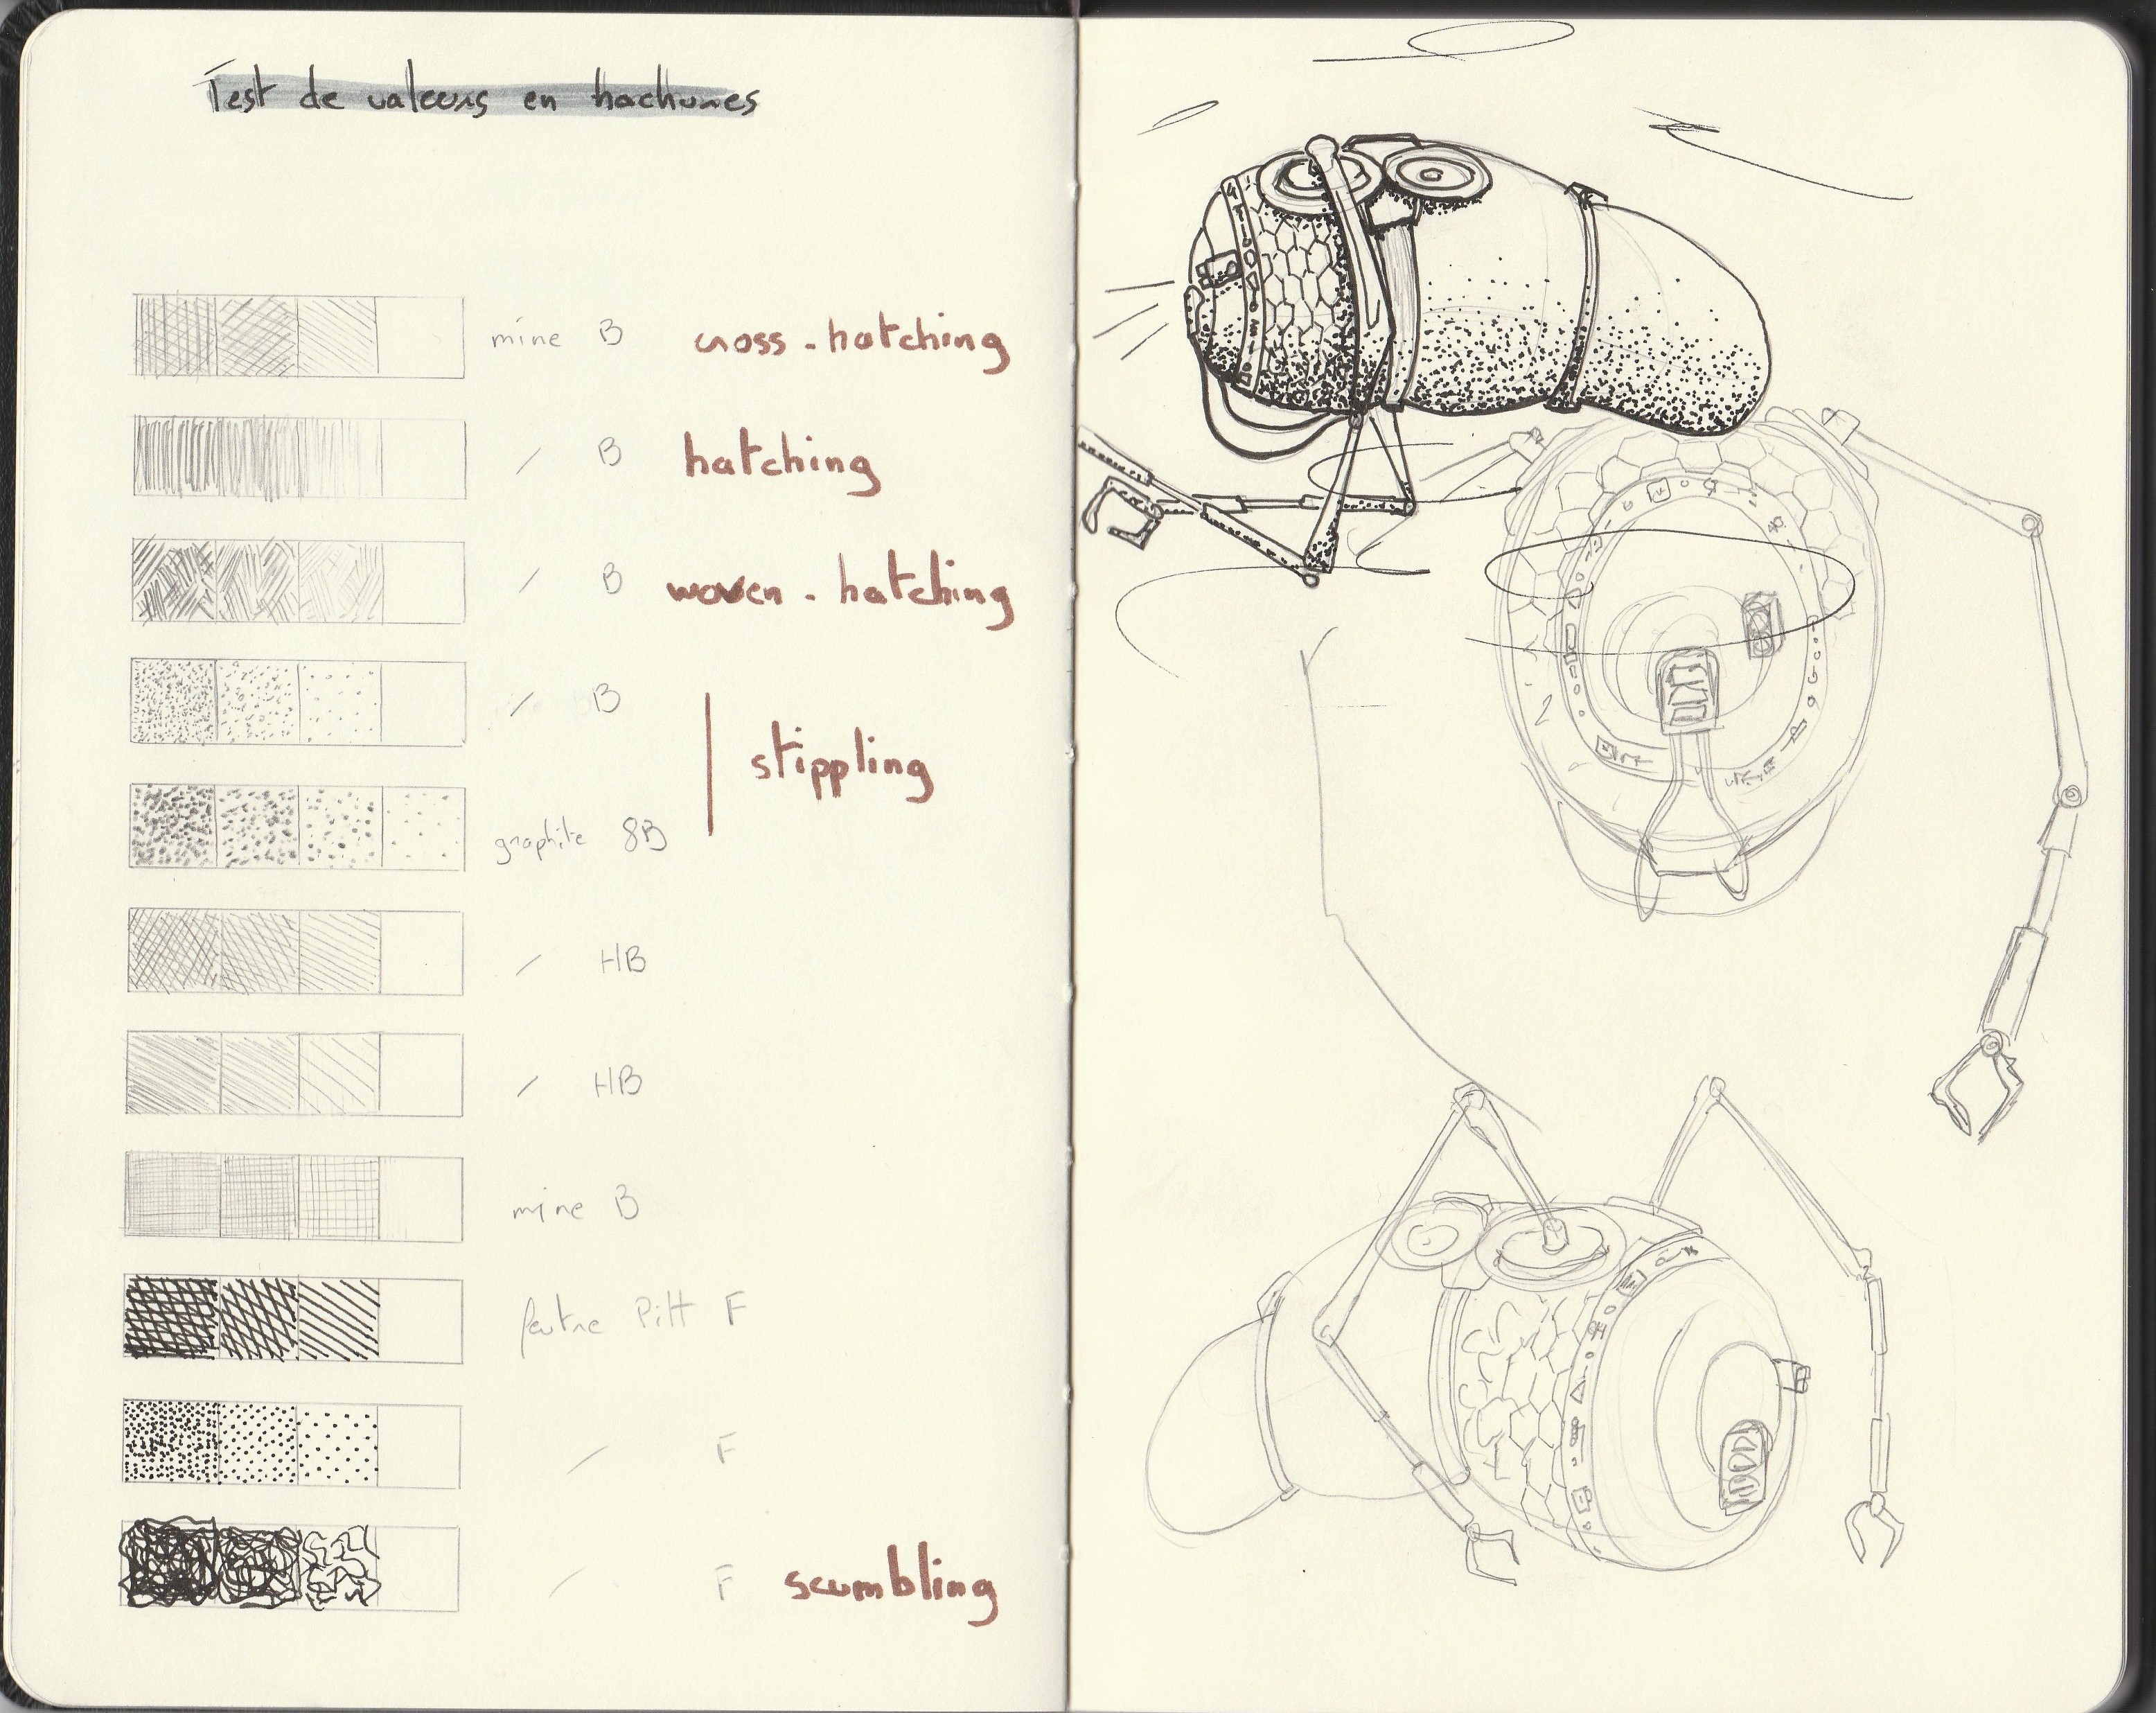 Test de valeurs en hachures
mine B cross-hatching
/ B hatching
/ B woven-hatching
/ B
stippling
graphite 8B
/ HB
/ HB
mine B
feutre Pitt F
/ F
/ F scumbling